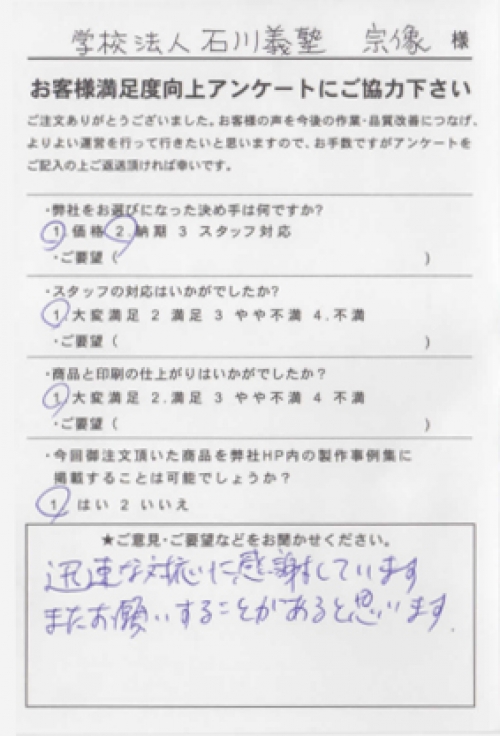 学校法人石川義塾 宗像 様
お客様満足度向上アンケートにご協力下さい
ご注文ありがとうございました。お客様の声を今後の作業・品質改善につなげ、
よりよい運営を行って行きたいと思いますので、お手数ですがアンケートを
ご記入の上ご返送頂ければ幸いです。
・弊社をお選びになった決め手は何ですか?
1.価格 2.納期 3 スタッフ対応
・ご要望 ( )
・スタッフの対応はいかがでしたか?
1.大変満足 2 満足 3 やや不満 4.不満
・ご要望 ( )
・商品と印刷の仕上がりはいかがでしたか?
1.大変満足 2.満足 3 やや不満 4 不満
・ご要望 ( )
・今回御注文頂いた商品を弊社HP内の製作事例集に
掲載することは可能でしょうか?
1. はい 2 いいえ
★ご意見・ご要望などをお聞かせください。
迅速な対応に感謝しています
またお願いすることがあると思います.